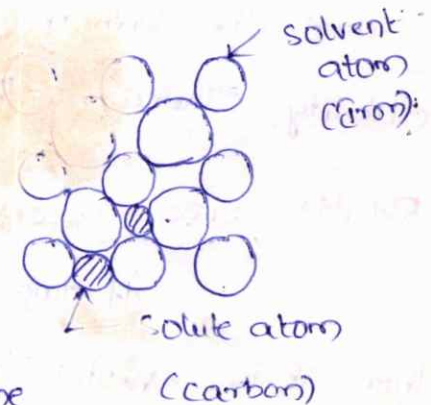 solvent
atom
(Iron):
solute atom
(carbon)